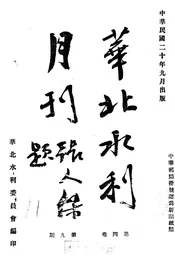 中華民國二十年九月出版
華北水利
月刊
張人傑
題
第四卷
第九期
中華郵局特准掛號認爲新聞紙類
華北水利委員會編印